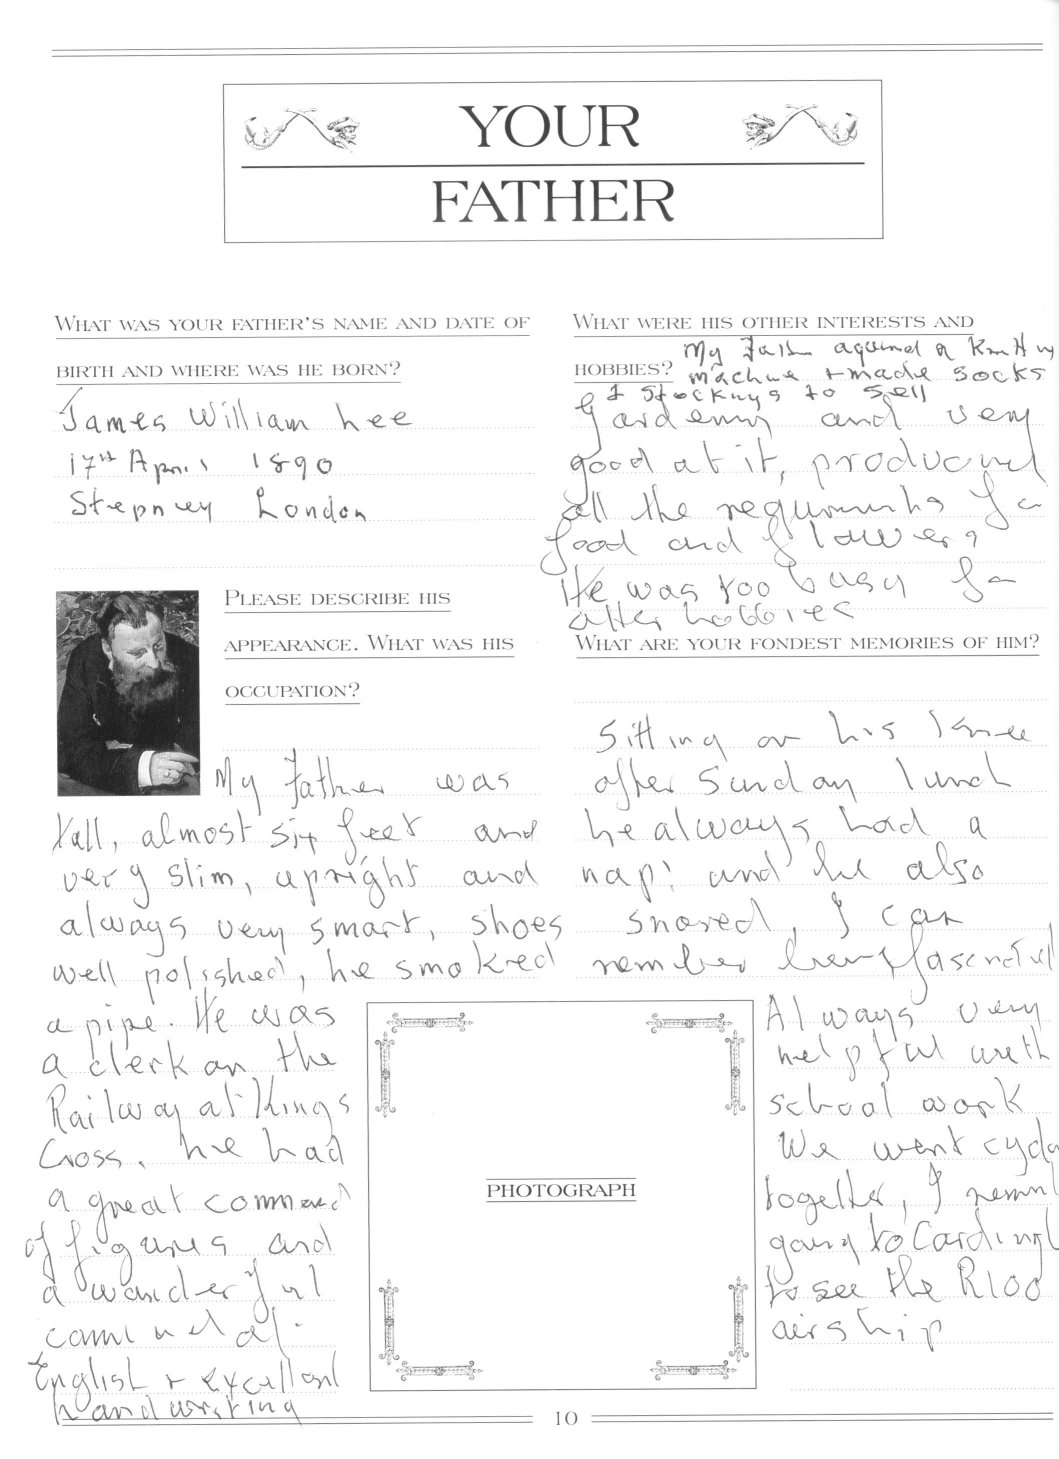 YOUR
FATHER
WHAT WAS YOUR FATHER'S NAME AND DATE OF
BIRTH AND WHERE WAS HE BORN?
James William Lee
17th April 1890
Stepney London
PLEASE DESCRIBE HIS
APPEARANCE. WHAT WAS HIS
OCCUPATION?
My Father was
tall, almost six feet and
very slim, upright and
always very smart, shoes
well polished, he smoked
a pipe. He was
a clerk on the
Railway at Kings
Cross. he had
a great command
of figures and
a wonderful
command of
English + excellent
handwriting
WHAT WERE HIS OTHER INTERESTS AND
HOBBIES?
My Father aquired a Knitting
machine + made socks
+ stockings to sell
Gardening and very
good at it, produced
all the requirements for
food and flowers
He was too busy for
other hobbies
WHAT ARE YOUR FONDEST MEMORIES OF HIM?
Sitting on his knee
after Sunday lunch
he always had a
nap! and he also
snored, I can
remember being fascinated
Always very
helpful with
school work
We went cycl
together, I rememb
going to Cardingt
to see the R100
airship
PHOTOGRAPH
10